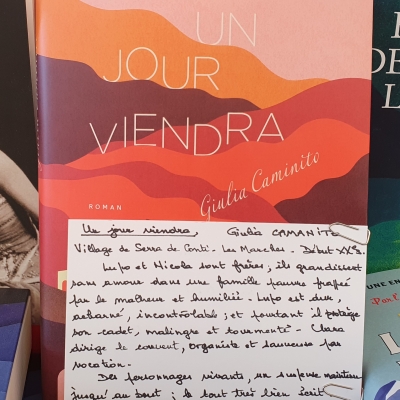 UN
JOUR
VIENDRA
Giulia Caminito
ROMAN
Un jour viendra, Giulia CAMANITO
Village de Serra de Conti - Les Marches - Début XXe.
Lupo et Nicola sont frères ; ils grandissent
sans amour dans une famille pauvre frappée
par le malheur et humiliée. Lupo est dur,
acharné, incontrôlable ; et pourtant il protège
son cadet, malingre et tourmenté - Clara
dirige le couvent, organiste et sauveuse par
vocation.
Des personnages vivants, un suspense maintenu
jusqu'au bout ; le tout très bien écrit
DE
L
UNE EN
L